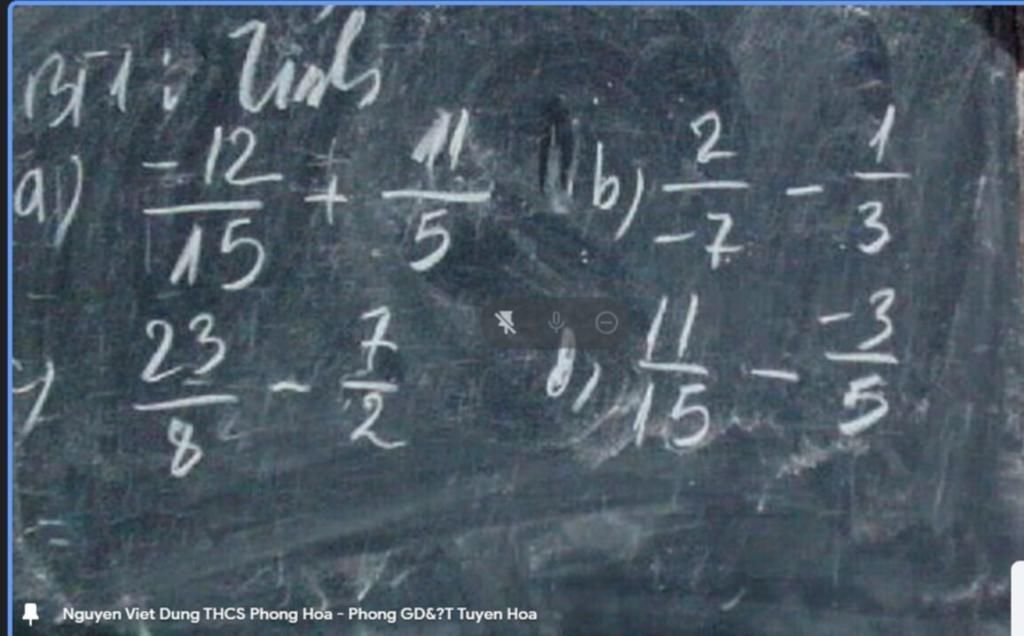 BT1: Tính
a) -12/15 + 11/5 b) 2/-7 - 1/3
) 23/8 - 7/2 d) 11/15 - -3/5
=
Nguyen Viet Dung THCS Phong Hoa - Phong GD&?T Tuyen Hoa